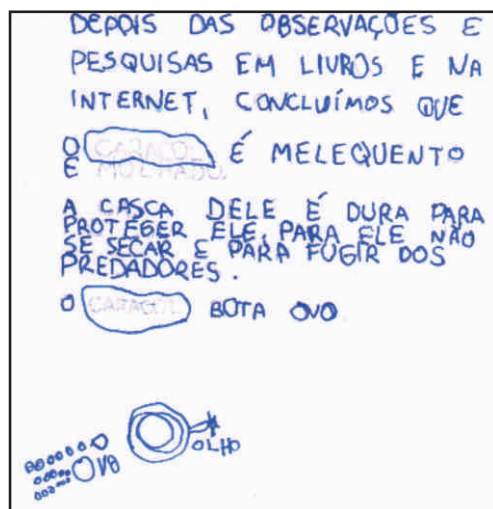 DEPOIS DAS OBSERVAÇÕES E
PESQUISAS EM LIVROS E NA
INTERNET, CONCLUÍMOS QUE
O CARACOL É MELEQUENTO
E MOLHADO.
A CASCA DELE É DURA PARA
PROTEGER ELE, PARA ELE NÃO
SE SECAR E PARA FUGIR DOS
PREDADORES.
O CARACOL BOTA OVO
OLHO